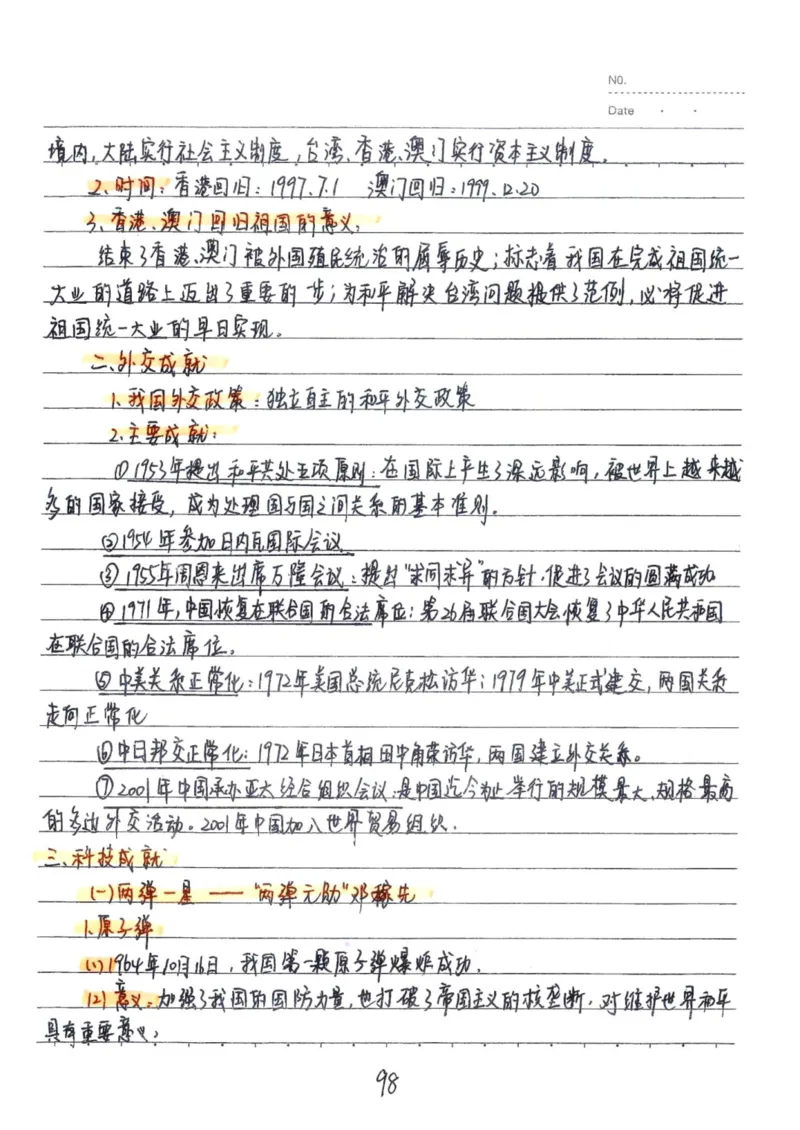 NO.
Date
境内,大陆实行社会主义制度,台湾、香港、澳门实行资本主义制度。
2、时间:香港回归:1997.7.1 澳门回归:1999.12.20
3、香港、澳门回归祖国的意义:
结束了香港、澳门被外国殖民统治的屈辱历史;标志着我国在完成祖国统一
大业的道路上迈出了重要的一步;为和平解决台湾问题提供了范例,必将促进
祖国统一大业的早日实现。
二、外交成就
1、我国外交政策:独立自主的和平外交政策
2.主要成就:
①1953年提出和平共处五项原则:在国际上产生了深远影响,被世界上越来越
多的国家接受,成为处理国与国之间关系的基本准则。
②1954年参加日内瓦国际会议
③1955年周恩来出席万隆会议:提出“求同求异”的方针,促进了会议的圆满成功
④1971年,中国恢复在联合国的合法席位:第26届联合国大会恢复了中华人民共和国
在联合国的合法席位。
⑤中美关系正常化:1972年美国总统尼克松访华;1979年中美正式建交,两国关系
走向正常化
⑥中日邦交正常化:1972年日本首相田中角荣访华,两国建立外交关系。
⑦2001年中国承办亚太经合组织会议:是中国迄今为止举行的规模最大、规格最高
的多边外交活动。2001年中国加入世界贸易组织.
三、科技成就
(一)两弹一星 ——“两弹元勋”邓稼先
1、原子弹
(1)1964年10月16日,我国第一颗原子弹爆炸成功.
(2)意义:加强了我国的国防力量,也打破了帝国主义的核垄断,对维护世界和平
具有重要意义;
98